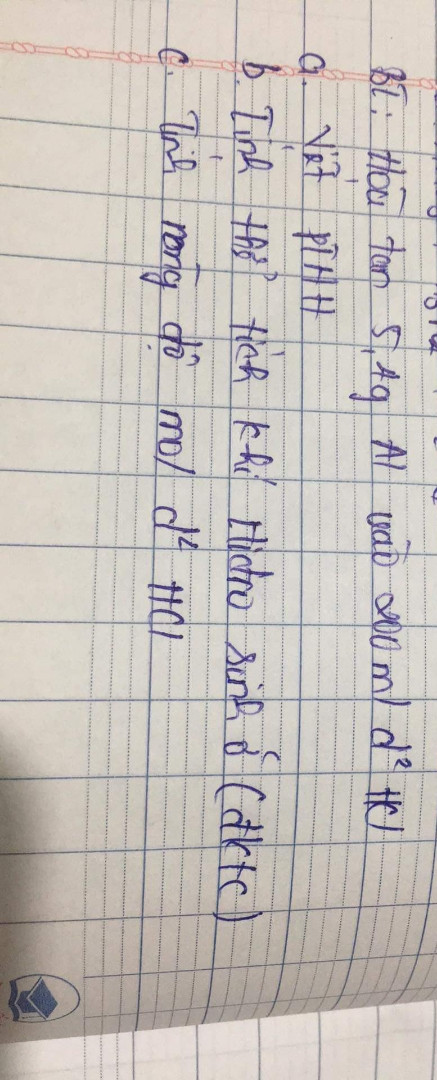 BT: Hòa tan 5,4g Al vào 200 ml d² HCl
a. Viết PTHH
b. Tính thể tích khí Hidro sinh ở (đktc)
c. Tính nồng độ mol d² HCl